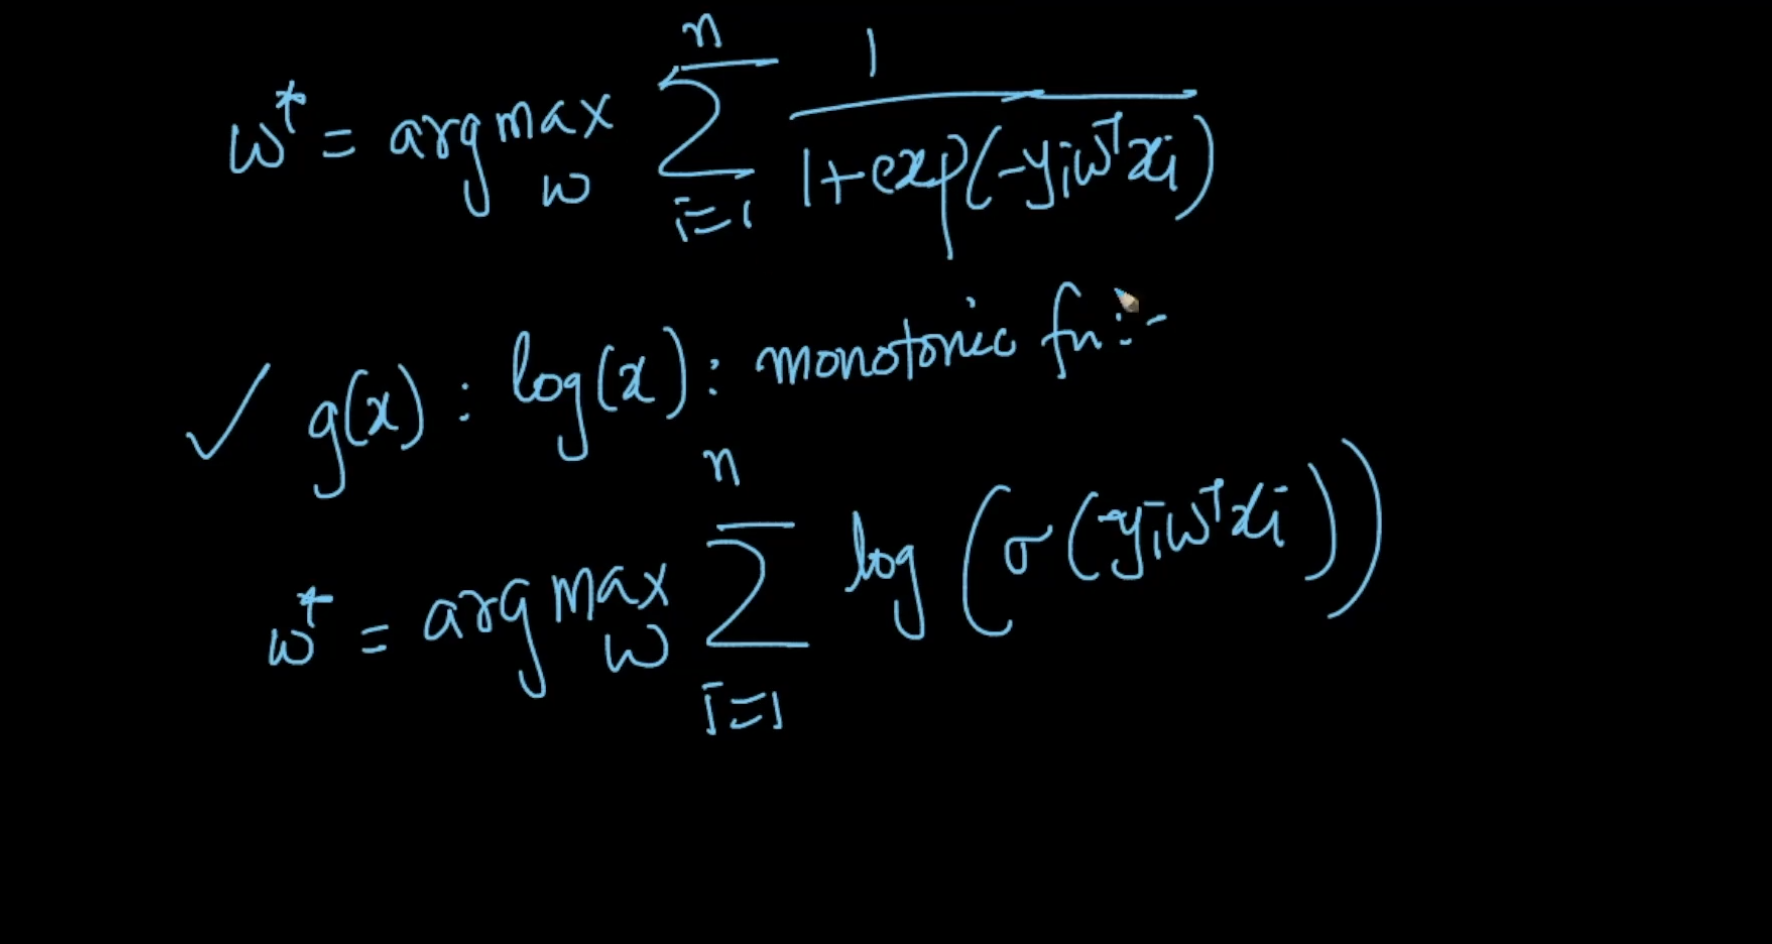 w* = argmax_w Σ_{i=1}^{n} 1 / (1+exp(-y_i w^T x_i))
✓ g(x) : log(x) : monotonic fn :-
w* = argmax_w Σ_{i=1}^{n} log(σ(-y_i w^T x_i))